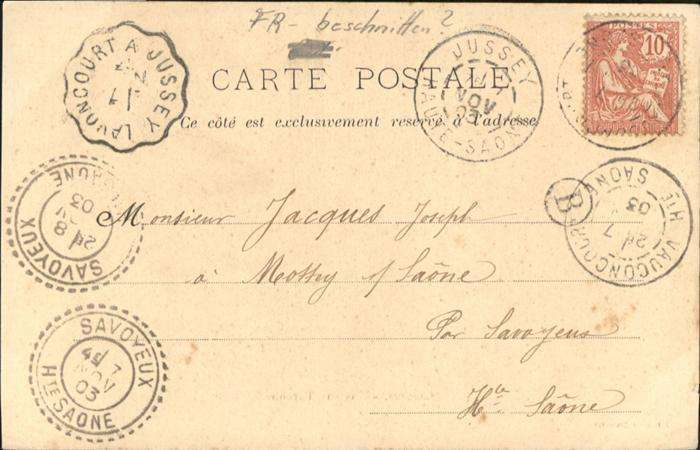 FR - beschnitten?
LAVONCOURT A JUSSEY
17
JUSSEY
NOV
03
HAUTE-SAONE
10
CARTE POSTALE
Ce côté est exclusivement reservé à l'adresse
SAVOYEUX
8
03
SAONE
VAUCONCOURT
Hte SAONE
7
03
B
Monsieur Jacques Joseph
à Mottey s/Saône
Par Savoyeux
Hte Saône
SAVOYEUX
7
NOV
03
Hte SAONE